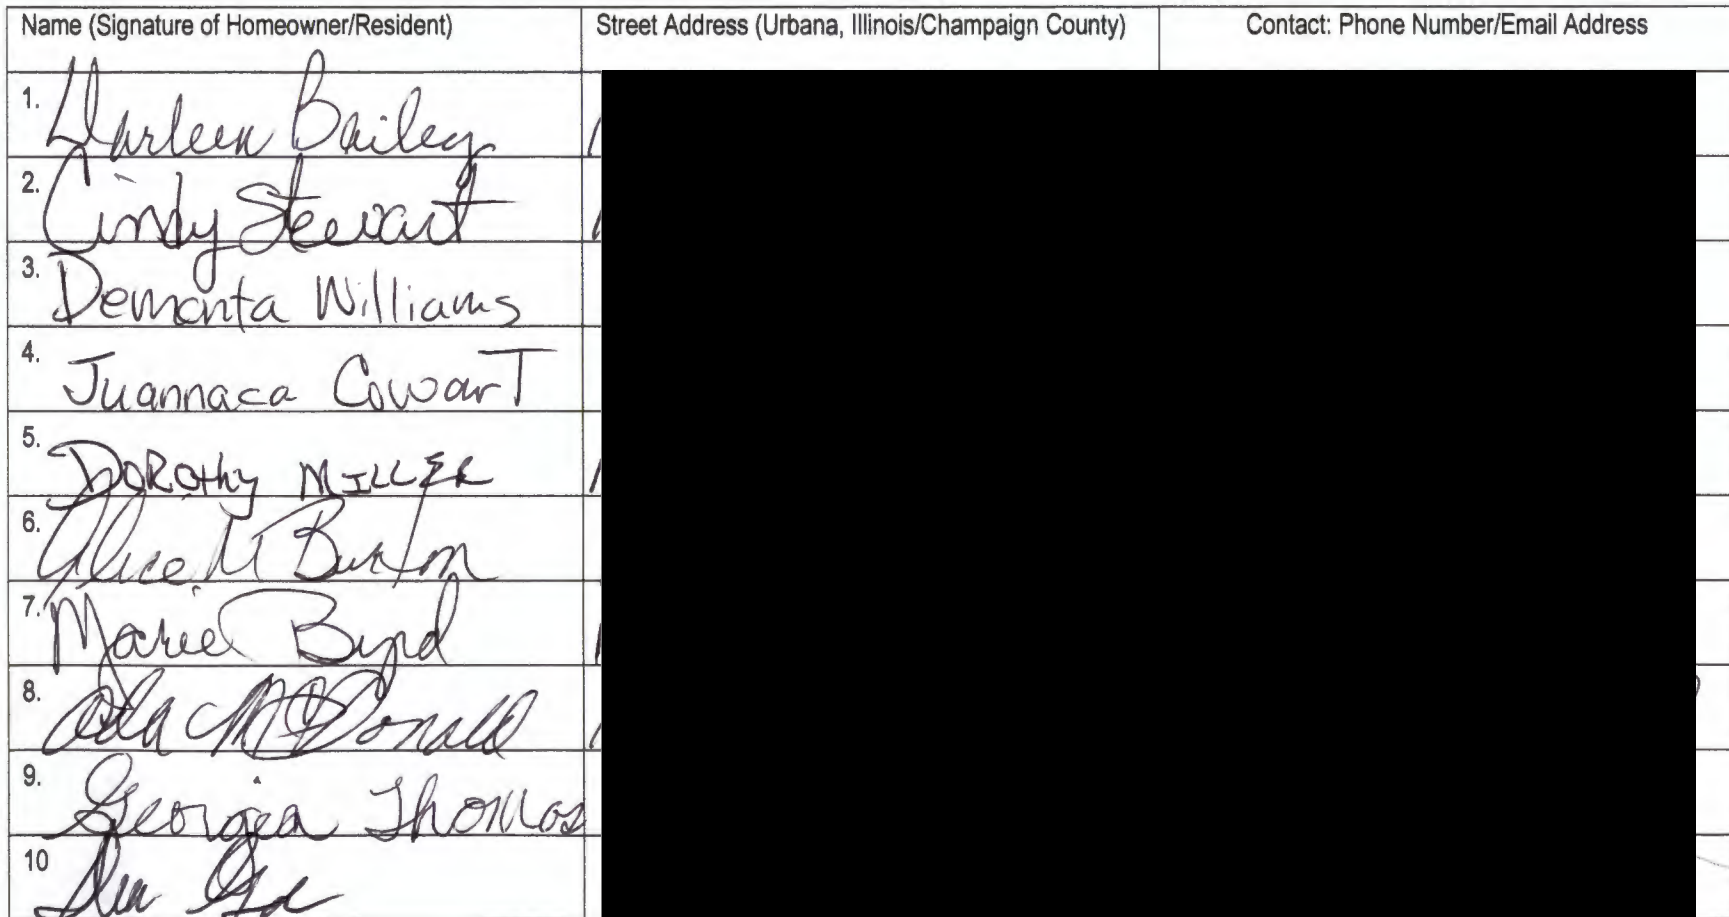 Name (Signature of Homeowner/Resident) Street Address (Urbana, Illinois/Champaign County) Contact: Phone Number/Email Address
1. Darleen Bailey
2. Cindy Stewart
3. Demonta Williams
4. Juannaca CowarT
5. DOROthy MILLER
6. Alice M Burton
7. Marie Byrd
8. McDonald
9. Georgia Thomas
10